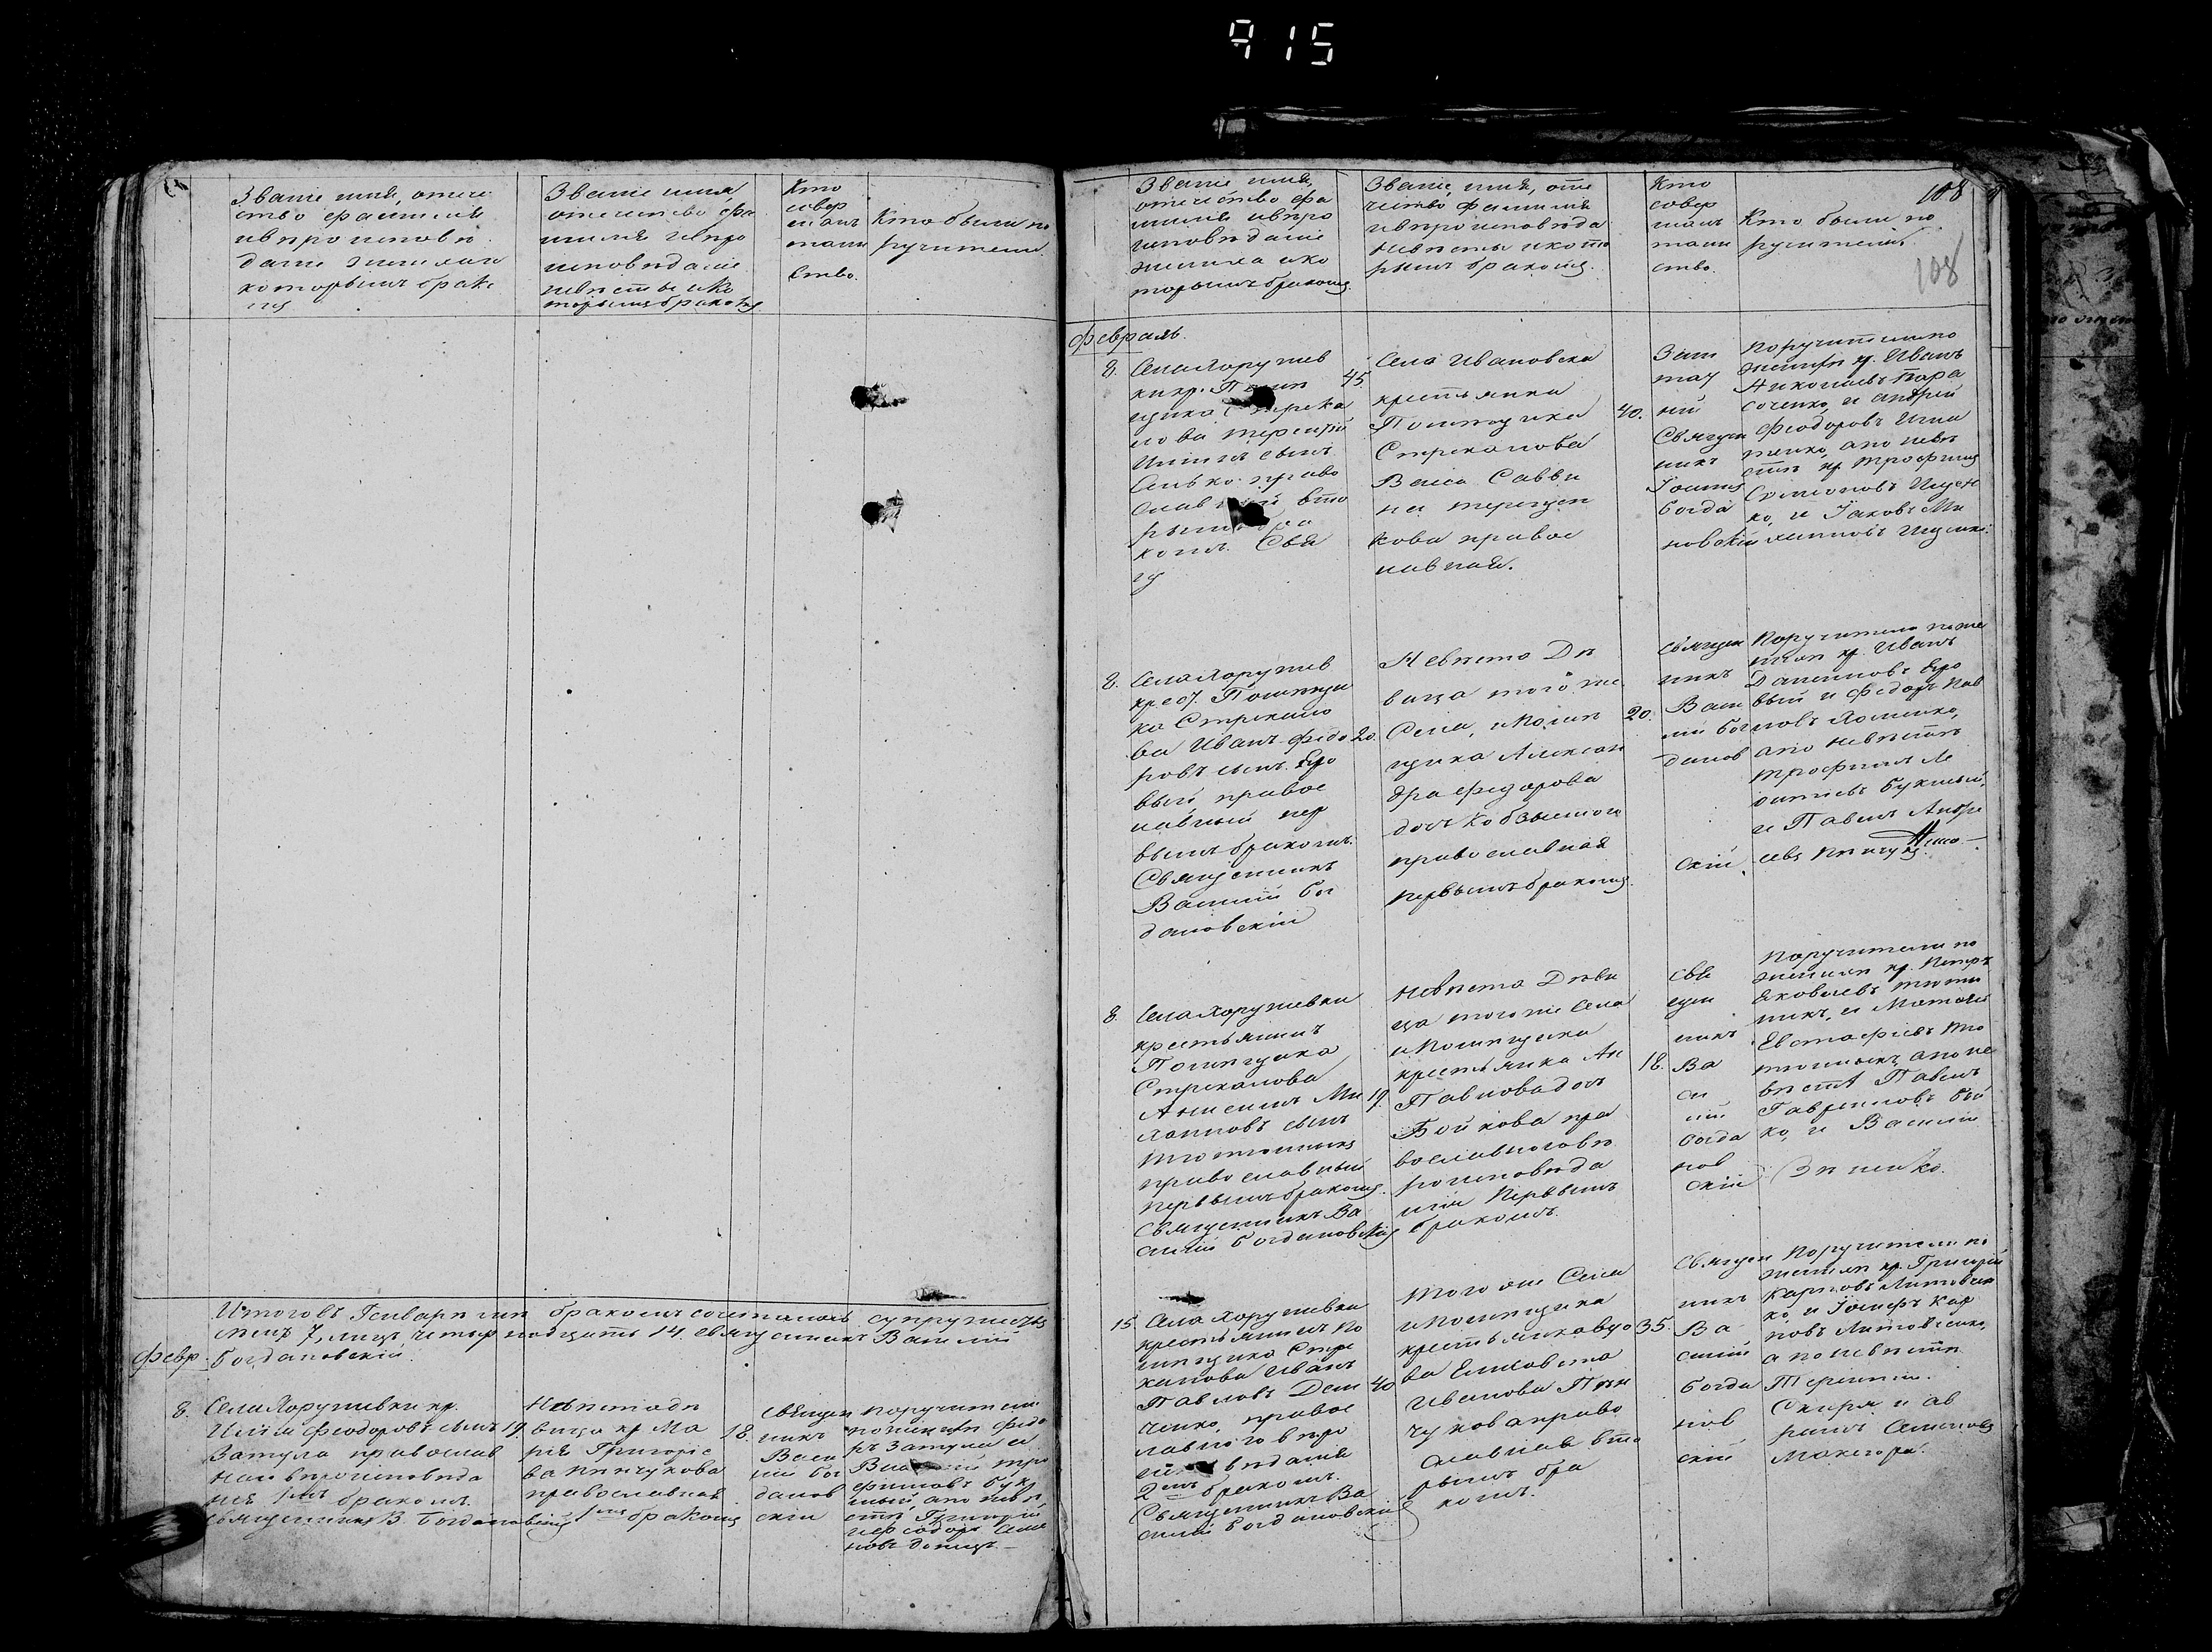 915
Званіе имя, отече
ство фамилія
ивѣроисповѣ
даніе жениха и
которымъ брако
мъ
Званіе имя,
отечество фа
милія ивѣро
исповѣданіе
невѣсты ико
торымъ бракомъ
Кто
совер
шалъ
таин
ство.
Кто были по
ручители.
Итого въ Генварѣ мѣ бракомъ сочеталось супружеств
7, лицъ четырнадцать 14. священникъ Василій
Богдановскій.
Февр.
8. Села Хорушевки кр.
Илія Феодоровъ сынъ 19.
Затула православ
наго вѣроисповѣда
нія 1мъ бракомъ.
священникъ В. Богдановскій
Невѣста дѣ
вица кр Ма 18.
рія Григоріе
ва Пинчукова
православная
1мъ бракомъ
священ
никъ
Васи
лій Бог
данов
скій
поручители
по женихѣ Федо
ръ Затула и
тро
фимовъ Бук
ный, а по невѣ
стѣ Григорій
новъ донецъ
108
108
Званіе имя,
отечество фа
милія ивѣро
исповѣданіе
жениха ико
торымъ бракомъ.
Званіе, имя, оте
чество фамилія
ивѣроисповѣда
невѣсты и кото
рымъ бракомъ.
Кто
совер
шалъ
таин
ство.
Кто были по
ручители.
Февраль.
8. Села Хорушев
ки кр. 45.
щика Стрека
лова Терентій
сынъ
право
слав вто
рымъ
комъ. Свя
щ
Села Ивановска
крестьянка
Помѣщика 40.
Стрекалова
Васса Савви
на терещен
кова правос
лавная.
Заш
тат
ный
Священ
никъ
Іоаннъ
Богда
новскій
Поручители по
женихѣ кр. Иванъ
Николаевъ Тара
сенко, и Андрей
Феодоровъ Игна
тенко, а по невѣ
стѣ кр Трофимъ
Симоновъ Ищен
ко, и Іаковъ Ми
хаиловъ Ищенко.
8. Села Хорушев
крес. Помѣщи
ка Стрекало
ва Иванъ Федо 20.
ровъ сынъ Бро
вый правос
лавный пер
вымъ бракомъ.
Священникъ
Василій Бог
дановскій
Невѣста Дѣ
вица того же
Села, иПомѣ 20.
щика Алексан
дра Федорова
дочь Кобзы
православная
первымъ бракомъ.
Священ
никъ
Васи
лій Бог
данов
скій.
Поручители по же
нихѣ кр. Иванъ
Даниловъ Бро
вый и Федоръ Пав
ловъ Хоменко,
а по невѣстѣ
Трофимъ Ле
онтіевъ Букный,
и Павелъ Андре
евъ Пинчукъ.
8. Села Хорушевки
крестьянинъ
Помѣщика
Стрекалова
Анисимъ Ми 19.
хаиловъ сынъ
Тютюнникъ
православный
первымъ бракомъ.
Священникъ Ва
силій Богдановскій
Невѣста Дѣви
ца того же Села
иПомѣщика
крестьянка Ан 18.
Павлова доч
Бойкова пра
вославного вѣ
роисповѣда
нія первымъ
бракомъ.
Свя
щен
никъ
Ва
си
лій
Богда
нов
скій
Поручители по
женихѣ кр. Петръ
Яковлевъ тютю
никъ, и Матфей
Евстафіевъ Тю
тюникъ, а по не
вѣстѣ Павелъ
Гавриловъ Бой
ко, и Василій
Зѣненко.
15. Села Хорушевки
крестьянинъ По
мѣщика Стре
калова Иванъ
Павловъ Дем 40.
ченко, правос
лавного вѣро
исповѣданія
2мъ бракомъ.
Священникъ Ва
силій Богдановскій
Того же Села
иПомѣщика
крестьянка вдо 35.
ва Елисавета
Иванова Пин
чукова право
славная вто
рымъ бра
комъ.
Священ
никъ
Ва
силій
Богда
нов
скій
Поручители по
женихѣ кр. Григорій
Карповъ Литовчен
ко, и Іосифъ Кар
повъ Литовченко,
а по невѣстѣ
Терентій
Скиря и ав
рамъ Семеновъ